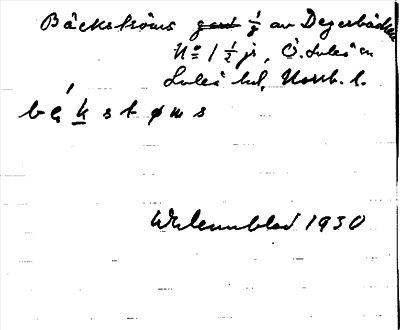 Bäckströms gård 1/8 av Degerbäcken
No 1 1/2 js, Ö. Luleå sn
Luleå hd, Norrb. l.
bę́kstrøms
Wilennblad 1930